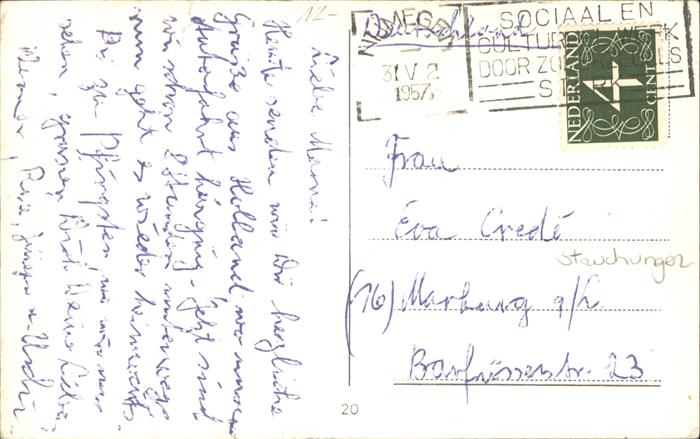 Liebe Mama!
Heute senden wir Dir herzliche
Grüsse aus Holland, wo unsere
Autofahrt hinging. Jetzt sind
wir schon 2 Stunden unterwegs
nun geht es wieder heimwärts.
Bis zu Pfingsten, wo wir uns
sehen, grüssen Dich Deine Lieben
Werner, Jürgen u. Uschi
12-
Deutschland
NIJMEGEN
31 V 2
1957
SOCIAAL EN
CULTUREEL WERK
DOOR ZOMERZEGELS
STERK
NEDERLAND
4
CENT
Frau
Eva Credé
Stauchungen
(16) Marburg a/L
Barfüsserstr. 23
20